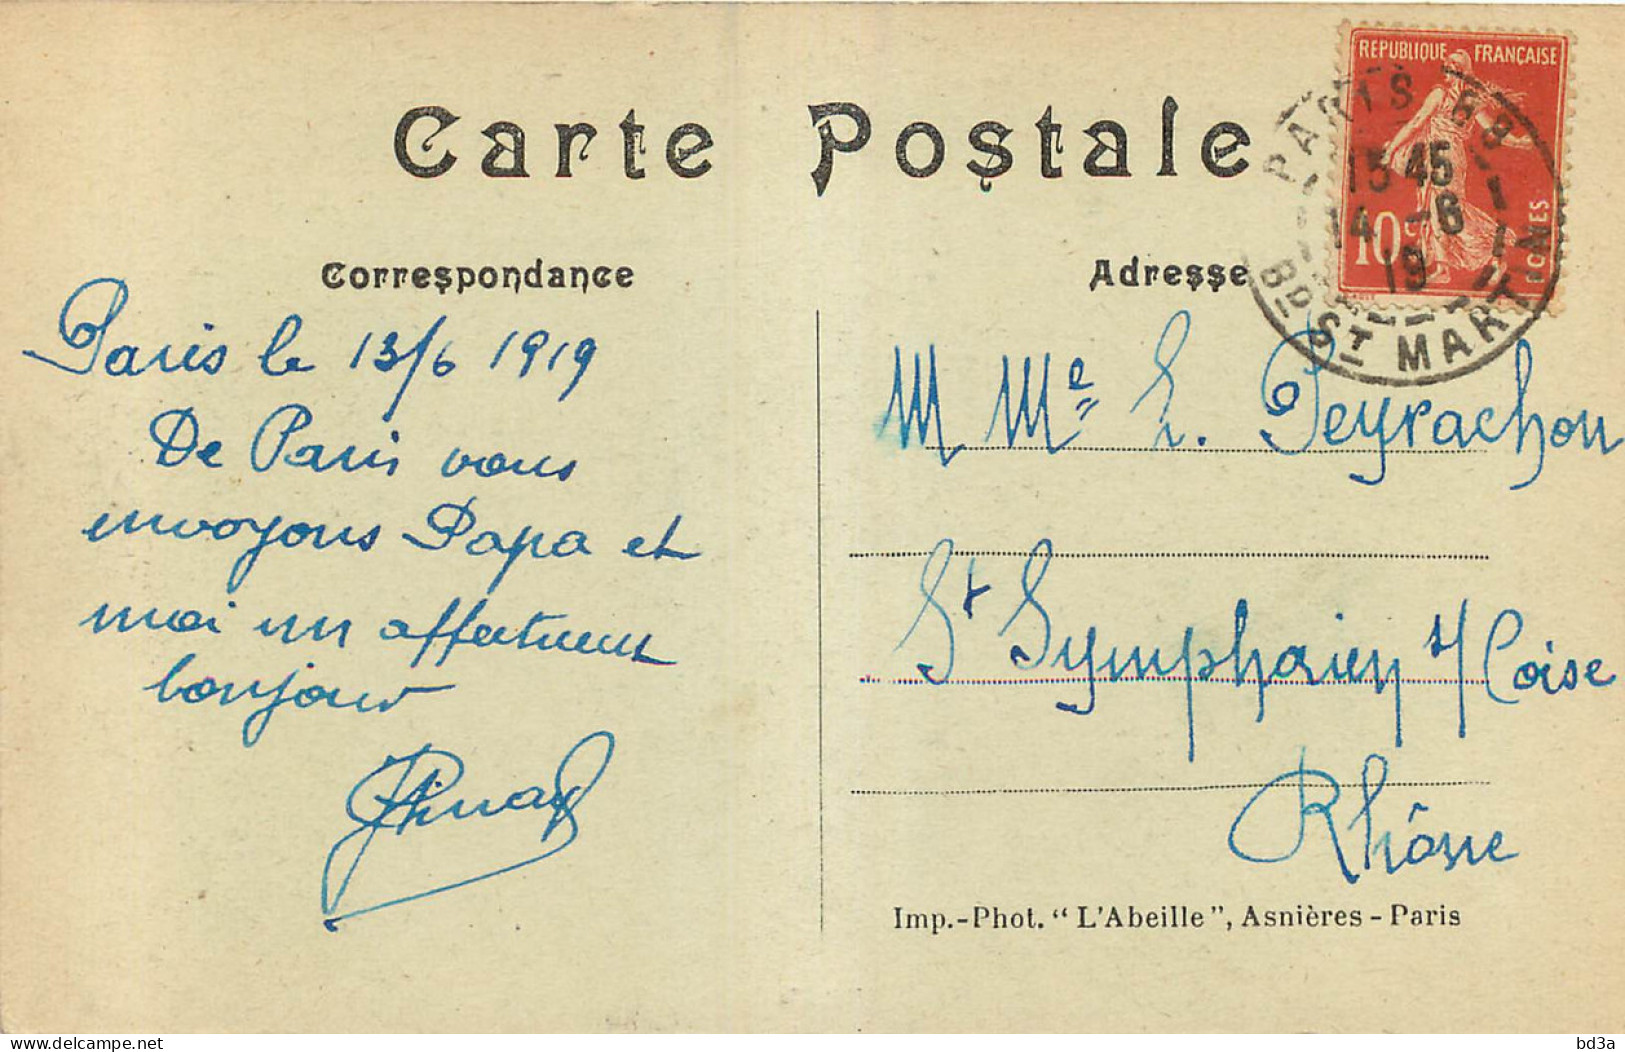 Carte Postale
RÉPUBLIQUE FRANÇAISE
10c
POSTES
PARIS 68
15 45
14 - 6
19
Bd ST MARTIN
Correspondance
Paris le 13/6 1919
De Paris vous
envoyons Papa et
moi un affectueux
bonjour
Adresse
M Me L. Peyrachon
St Symphorien s/ Coise
Rhône
Imp.-Phot. “ L'Abeille ”, Asnières - Paris
delcampe.net
bd3a